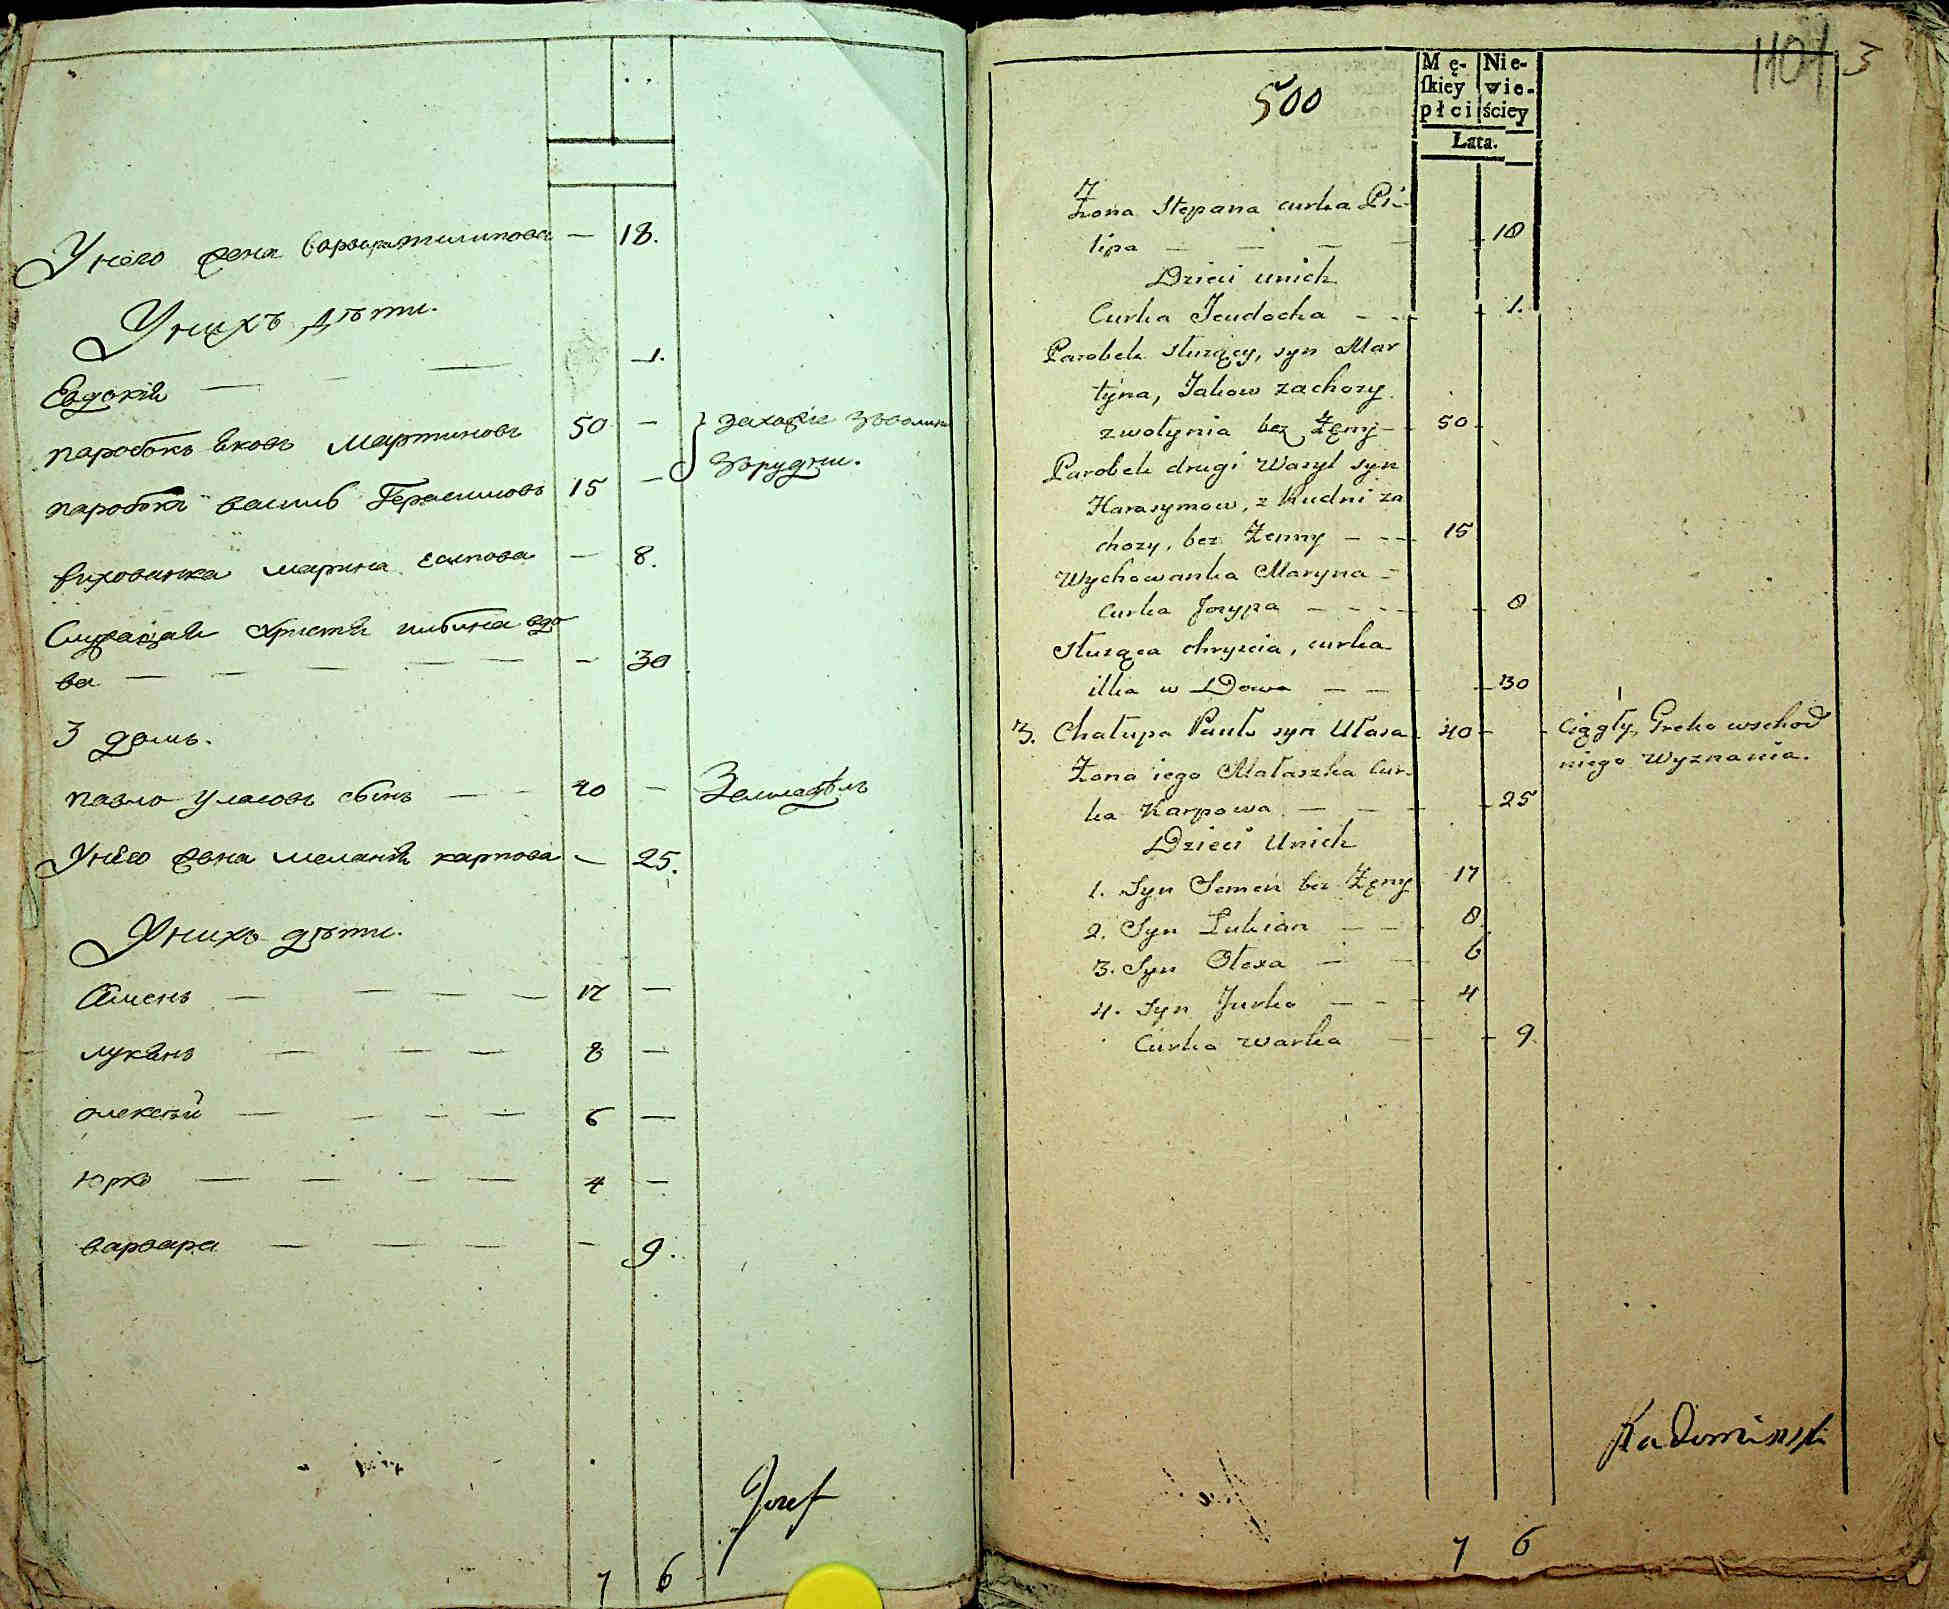 У него жена варвара пилипова — 18.
У нихъ дѣти.
Евдокія — — — 1.
паробокъ яковъ мартиновъ 50 — } захожіе зволини
паробокъ василь Герасимовъ 15 — зрудни.
вихованка марина есипова — 8.
Служащая христия илбина вдо
ва — — — — — 30
3 домъ.
павло Уласовъ сынъ — — 40 — Земледѣль
У него жена мелания карпова — 25.
У нихъ дѣти.
Семенъ — — — — — 17 —
лукянъ — — — — 8 —
олексѣй — — — — 6 —
юрко — — — — 4 —
варвара — — — — 9.
Jozef
7 6
1101 3
500
Mę- Nie-
ſkiey wie-
płci ściey
Lata.
Żona Stepana curka Pi-
lipa — — — — 18
Dzieci unich
Curka Jeudocha — — 1.
Parobek słuzący, syn Mar
tyna, Jakow zachozy
zwołynia bez Żęny — 50
Parobek drugi Wasyl syn
Harasymow, z Rudni za
chozy, bez Żenny — — 15
Wychowanka Maryna —
Curka Jozypa — — — — 8
Słuząca chryscia, curka
ilka w Dowa — — — 30
3. Chałupa Pawło syn Ułasa 40 — Ciągły, Greko wschod
Żona iego Małaszka Cur- niego Wyznania.
ka Karpowa — — — 25
Dzieci Unich
1. Syn Semen bez Żęny 17
2. Syn Łukian — — 8
3. Syn Ołexa — — 6
4. Syn Jurko — — — 4
Curka warka — — 9
Radominski
7 6